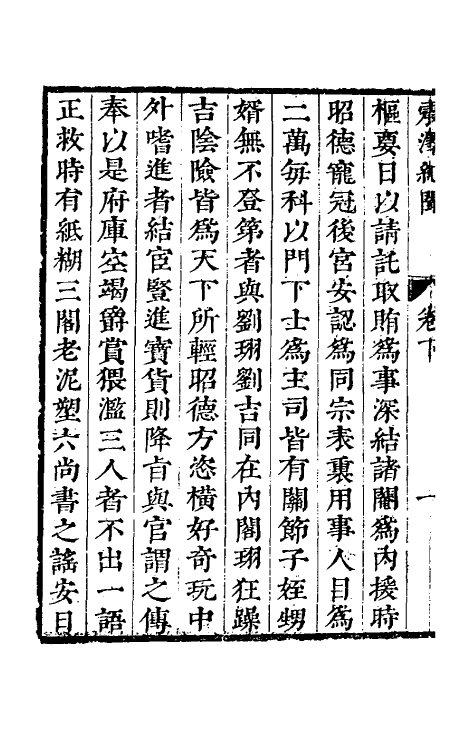 震澤紀聞　卷下　一
樞要日以請託取賄爲事深結諸閹爲內援時
昭德寵冠後宮安認爲同宗表裏用事人目爲
二萬每科以門下士爲主司皆有關節子姪甥
婿無不登第者與劉珝劉吉同在內閣珝狂躁
吉陰險皆爲天下所輕昭德方恣橫好奇玩中
外嗜進者結宦豎進寶貨則降旨與官謂之傳
奉以是府庫空竭爵賞猥濫三人者不出一語
正救時有紙糊三閣老泥塑六尚書之謠安日